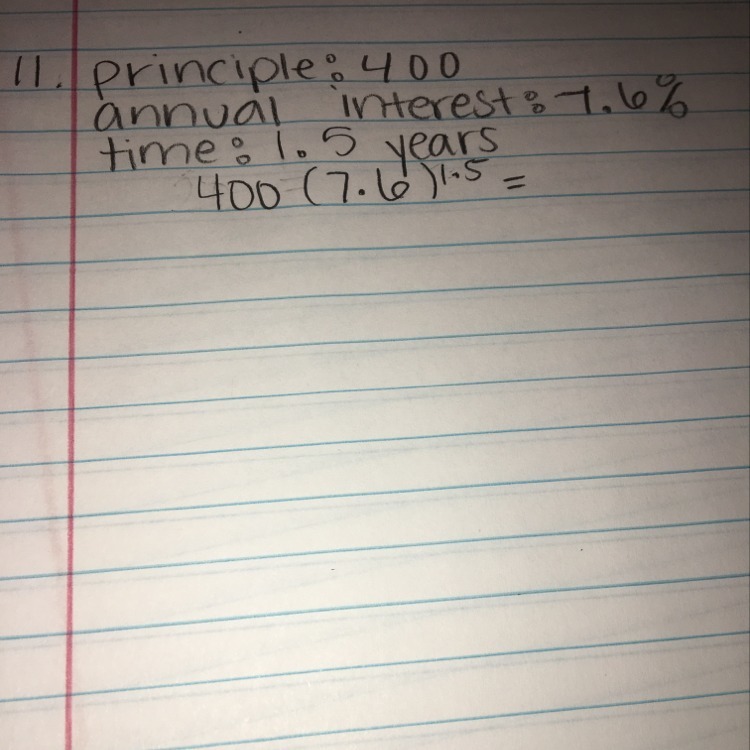 11. principle: 400
annual interest: 7.6%
time: 1.5 years
400 (7.6)^1.5 =